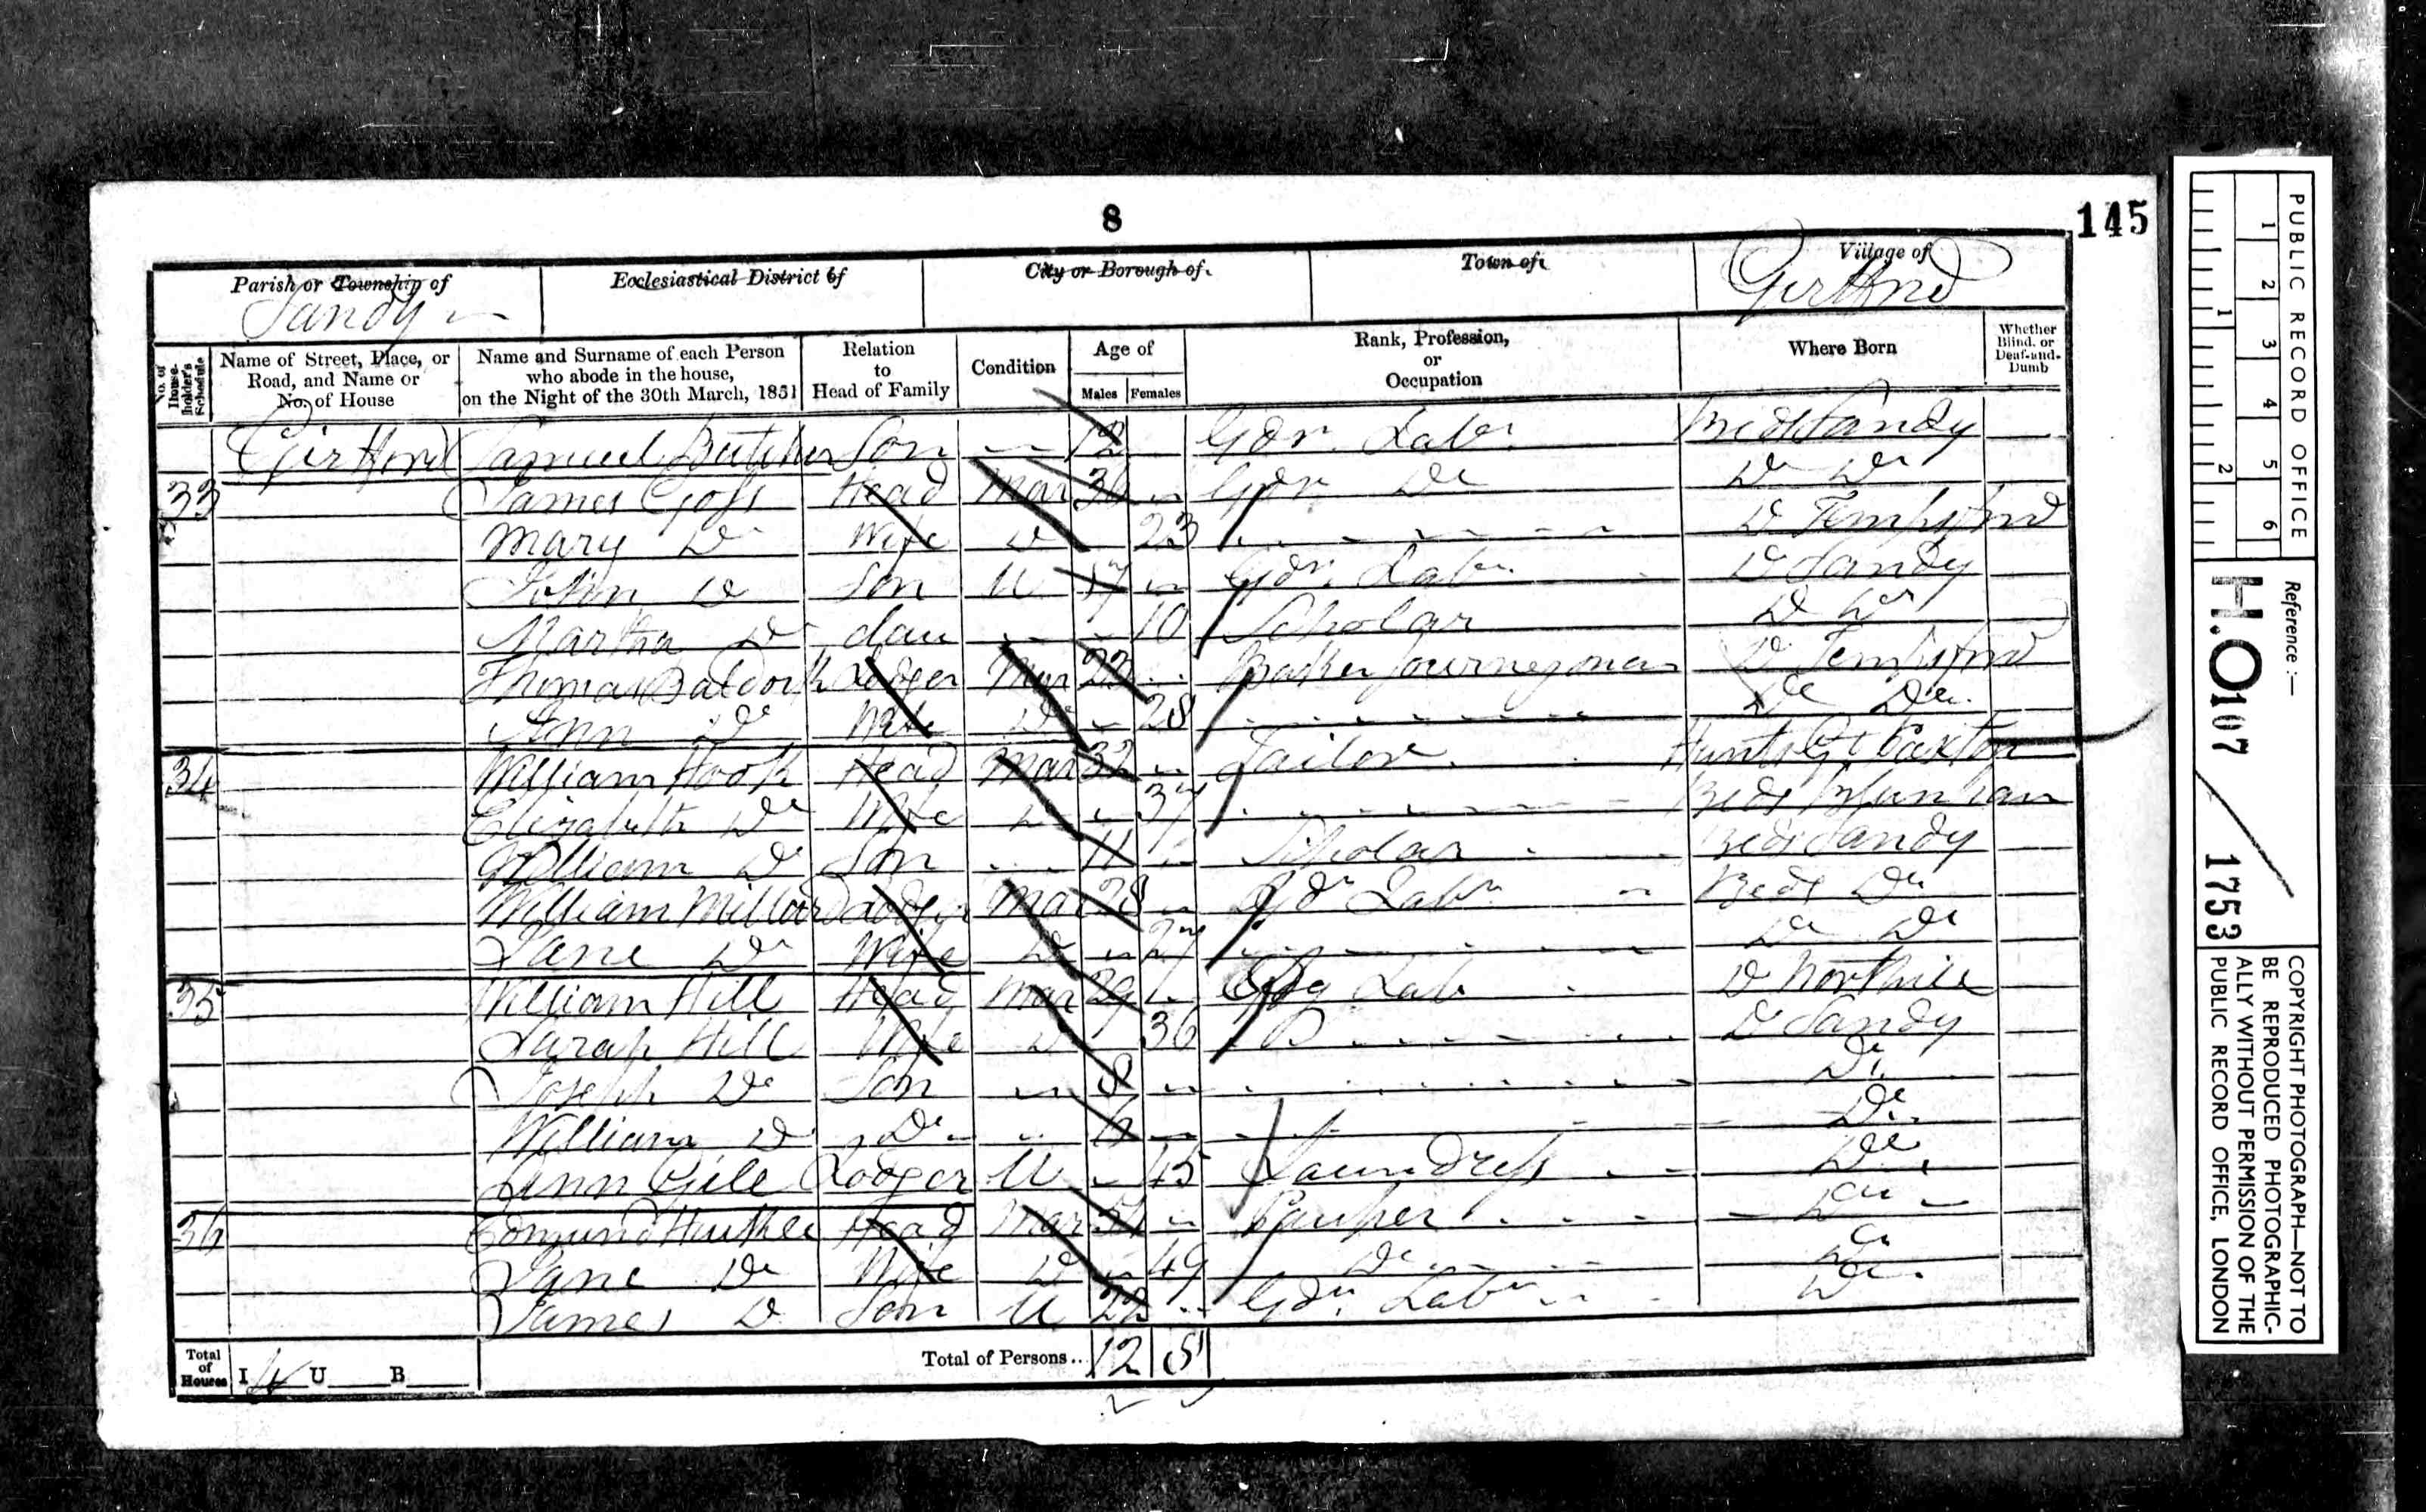 8
145
Parish or Township of
Sandy
Ecclesiastical District of
City or Borough of
Town of
Village of
Girtford
No. of House-holder's Schedule
Name of Street, Place, or Road, and Name or No. of House
Name and Surname of each Person who abode in the house, on the Night of the 30th March, 1851
Relation to Head of Family
Condition
Age of
Males Females
Rank, Profession, or Occupation
Where Born
Whether Blind, or Deaf-and-Dumb
Girtford Samuel Butcher Son 12 Gdr Labr Beds Sandy
33 James Goss Head Mar Gdr Do Do Do
Mary Do Wife Do 23 Do Tempsford
John Do Son U 17 Gdr Labr Do Sandy
Martha Do dau 10 Scholar Do Do
Thomas Lodger Mar 23 Baker Journeyman Do Tempsford
Ann Do Wife Do 28 Do Do
34 William Hook Head Mar 32 Tailor Hunts Gt Paxton
Elizabeth Do Wife Do 37 Beds Blunham
William Do Son 11 Scholar Beds Sandy
William Lodger Mar 28 Gdr Labr Beds Do
Jane Do Wife Do 27 Do Do
35 William Hill Head Mar 29 Ag Lab Do Northill
Sarah Hill Wife Do 36 Do Sandy
Joseph Do Son 8 Do
William Do Do Do
Ann Gill Lodger U 45 Laundress Do
36 Edmund Head Mar Pauper Do
Jane Do Wife Do 49 Do Do
James Do Son U 22 Gdr Labr Do
Total of Houses I 4 U B
Total of Persons.. 12 8
PUBLIC RECORD OFFICE
1 2 3 4 5 6
1 2
Reference :—
H.O 107 / 1753
COPYRIGHT PHOTOGRAPH—NOT TO BE REPRODUCED PHOTOGRAPHIC-ALLY WITHOUT PERMISSION OF THE PUBLIC RECORD OFFICE, LONDON